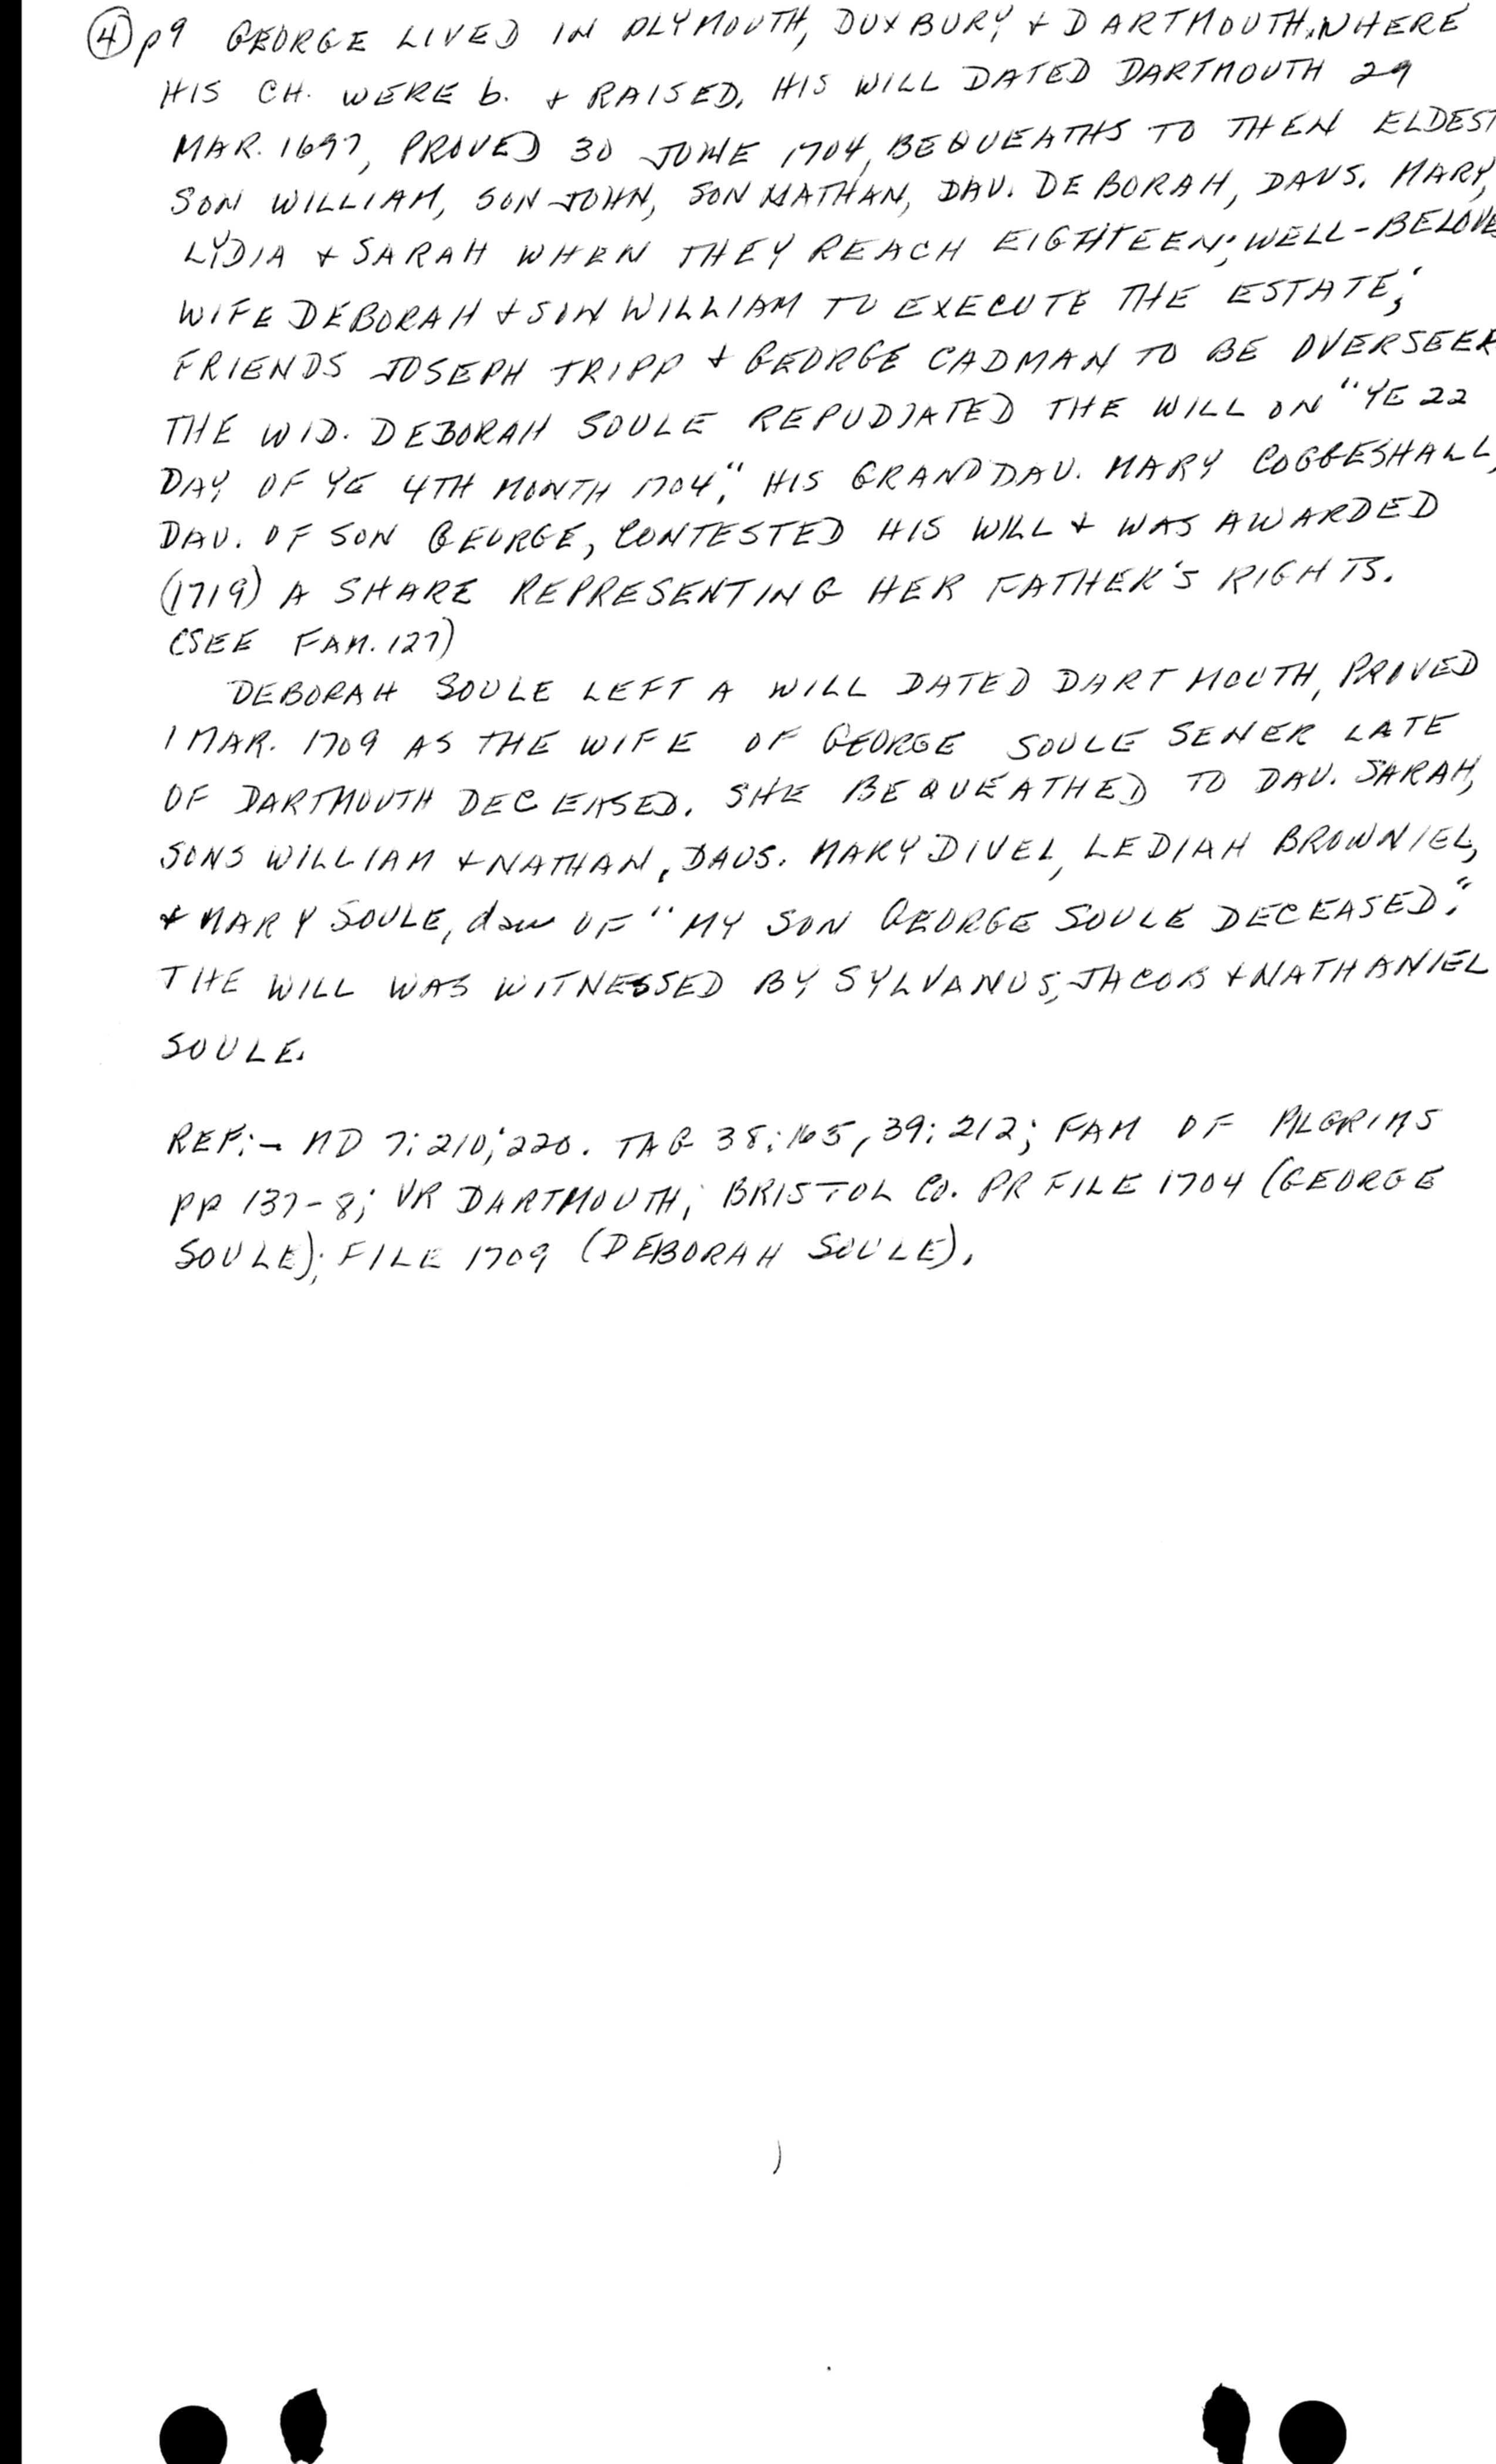 ④ p9 GEORGE LIVED IN PLYMOUTH, DUXBURY, + DARTMOUTH, WHERE
HIS CH. WERE b. + RAISED. HIS WILL DATED DARTMOUTH 29
MAR. 1697, PROVED 30 JUNE 1704, BEQUEATHS TO THEN ELDEST
SON WILLIAM, SON JOHN, SON NATHAN, DAU. DEBORAH, DAUS. MARY,
LYDIA + SARAH WHEN THEY REACH EIGHTEEN; WELL-BELOVE
WIFE DEBORAH + SON WILLIAM TO EXECUTE THE ESTATE;
FRIENDS JOSEPH TRIPP + GEORGE CADMAN TO BE OVERSEER
THE WID. DEBORAH SOULE REPUDIATED THE WILL ON "YE 22
DAY OF YE 4TH MONTH 1704." HIS GRANDDAU. MARY COGGESHALL,
DAU. OF SON GEORGE, CONTESTED HIS WILL + WAS AWARDED
(1719) A SHARE REPRESENTING HER FATHER'S RIGHTS.
(SEE FAM. 127)
DEBORAH SOULE LEFT A WILL DATED DARTMOUTH, PROVED
1 MAR. 1709 AS THE WIFE OF GEORGE SOULE SENER LATE
OF DARTMOUTH DECEASED. SHE BEQUEATHED TO DAU. SARAH,
SONS WILLIAM + NATHAN, DAUS. MARY DIVEL, LEDIAH BROWNIEL,
+ MARY SOULE, dau OF "MY SON GEORGE SOULE DECEASED."
THE WILL WAS WITNESSED BY SYLVANUS, JACOB + NATHANIEL
SOULE.
REF:- MD 7:210; 220. TAG 38:165, 39:212; FAM OF PILGRIMS
PP 137-8; VR DARTMOUTH; BRISTOL CO. PR FILE 1704 (GEORGE
SOULE); FILE 1709 (DEBORAH SOULE).